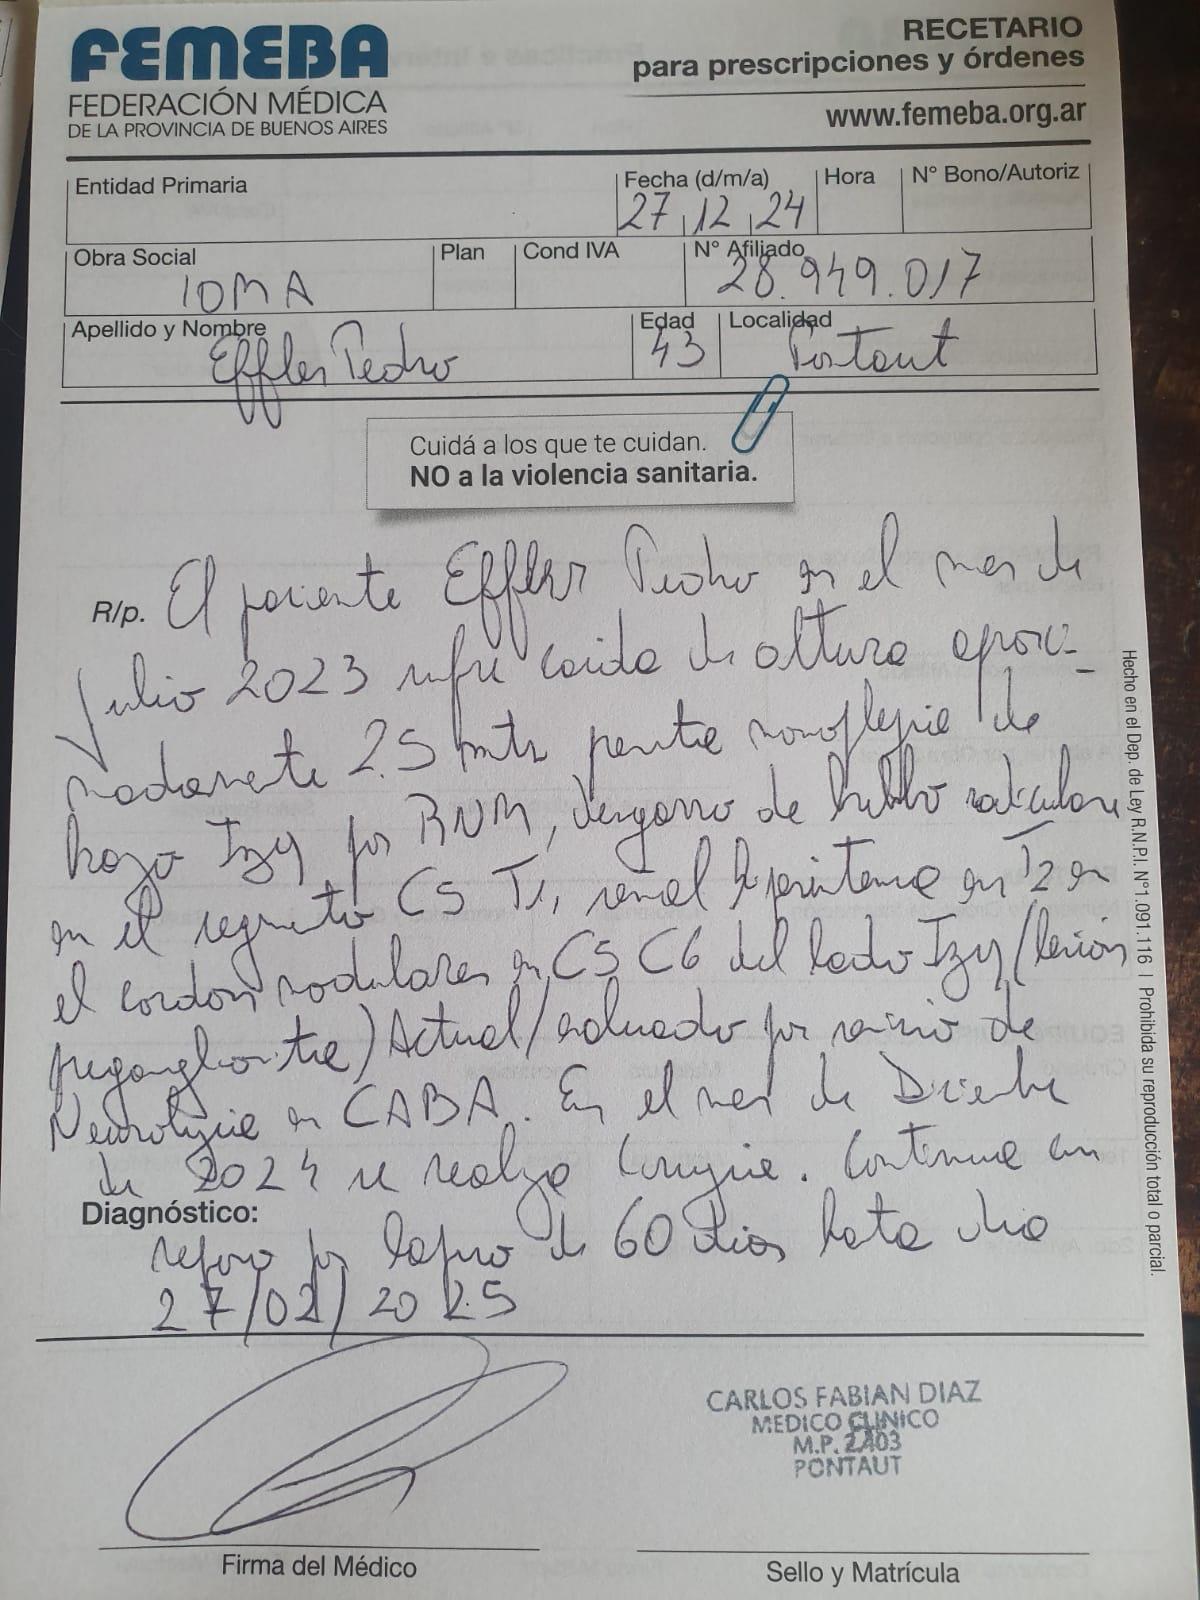 FEMEBA
FEDERACIÓN MÉDICA
DE LA PROVINCIA DE BUENOS AIRES
RECETARIO
para prescripciones y órdenes
www.femeba.org.ar
Entidad Primaria
Fecha (d/m/a) Hora N° Bono/Autoriz
27 12 24
Obra Social Plan Cond IVA N° Afiliado
IOMA 28.949.017
Apellido y Nombre Edad Localidad
Effler Pedro 43 Pontaut
Cuidá a los que te cuidan.
NO a la violencia sanitaria.
R/p. El paciente Effler Pedro en el mes de
Julio 2023 sufre caida de altura aproxi-
madamente 2.5 mts monoplegia de
brazo Izq por RNM, desgarro de
en el segmento C5 T1, señal hiperintensa en T2 en
el cordon medular en C5 C6 del lado Izq (lesión
preganglionar) Actual/ evaluado por servicio de
Neurologia en CABA. En el mes de Diciembre
de 2024 se realizo Cirugia. Continua con
Diagnóstico:
reposo por lapso de 60 dias hasta dia
27/02/2025
CARLOS FABIAN DIAZ
MEDICO CLINICO
M.P. 2403
PONTAUT
Firma del Médico
Sello y Matrícula
Hecho en el Dep. de Ley R.N.P.I. N°1.091.116 | Prohibida su reproducción total o parcial.